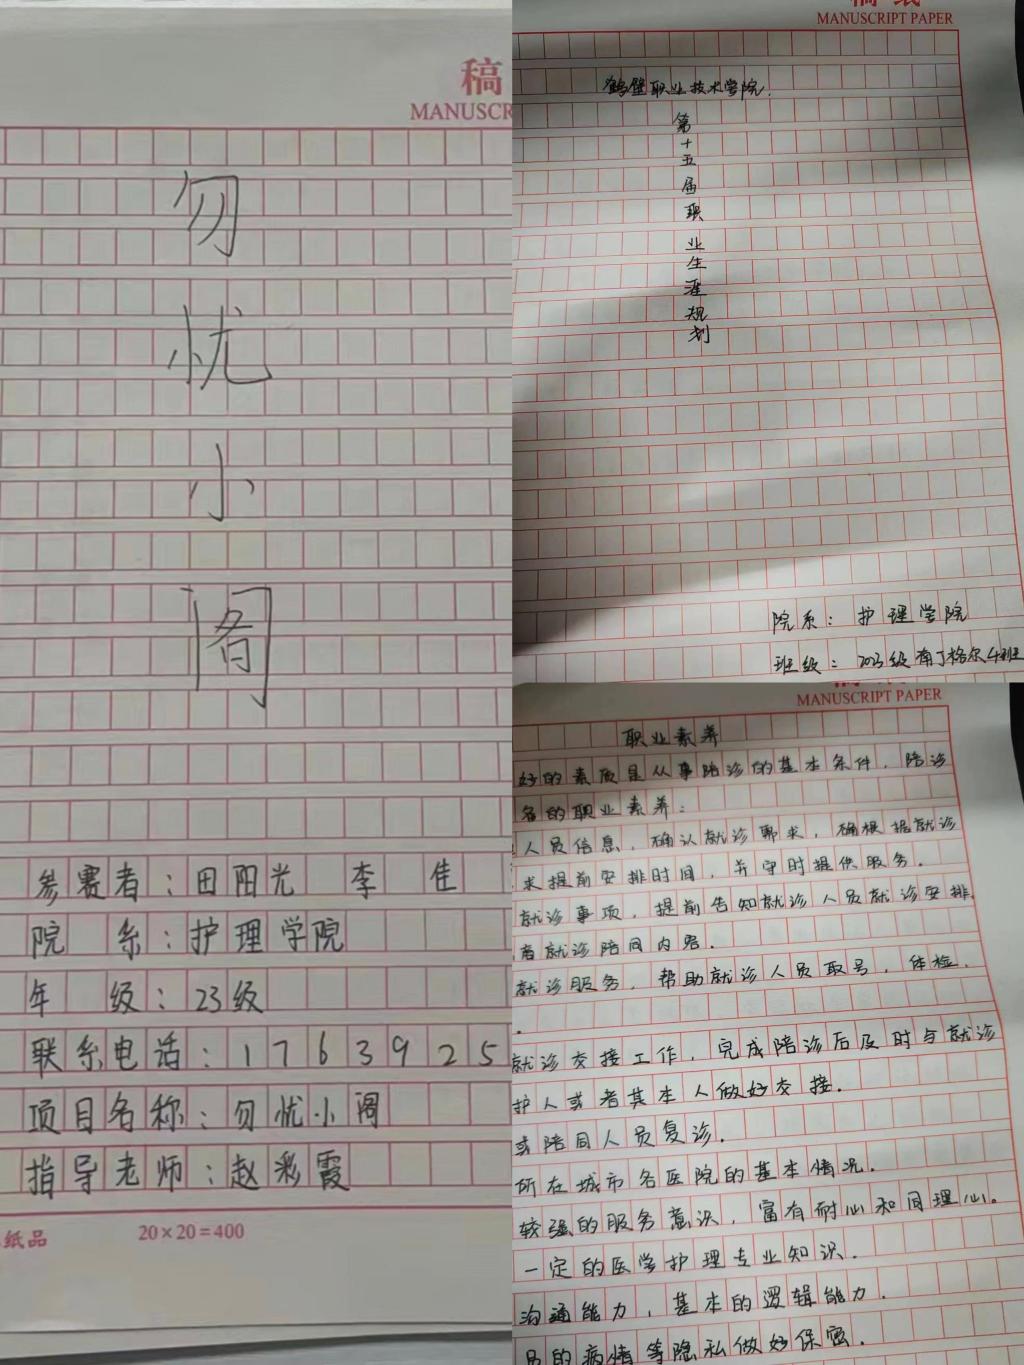 稿
MANUSCR
勿
忧
小
阁
参赛者：田阳光 李 佳
院 系：护理学院
年 级：23级
联系电话：1763925
项目名称：勿忧小阁
指导老师：赵彩霞
纸品
20×20=400
稿 纸
MANUSCRIPT PAPER
鹤壁职业技术学院.
第
十
五
届
职
业
生
涯
规
划
院系：护理学院
班级：2023级南丁格尔4班
MANUSCRIPT PAPER
职业素养
好的素质是从事陪诊的基本条件，陪诊
备的职业素养：
人员信息，确认就诊需求，确根据就诊
求提前安排时间，并守时提供服务.
就诊事项，提前告知就诊人员就诊安排,
者就诊陪同内容.
就诊服务，帮助就诊人员取号，体检，
.
就诊交接工作，完成陪诊后及时与就诊
护人或者其本人做好交接.
或陪同人员复诊.
所在城市各医院的基本情况.
较强的服务意识，富有耐心和同理心。
一定的医学护理专业知识.
沟通能力，基本的逻辑能力.
员的病情等隐私做好保密.